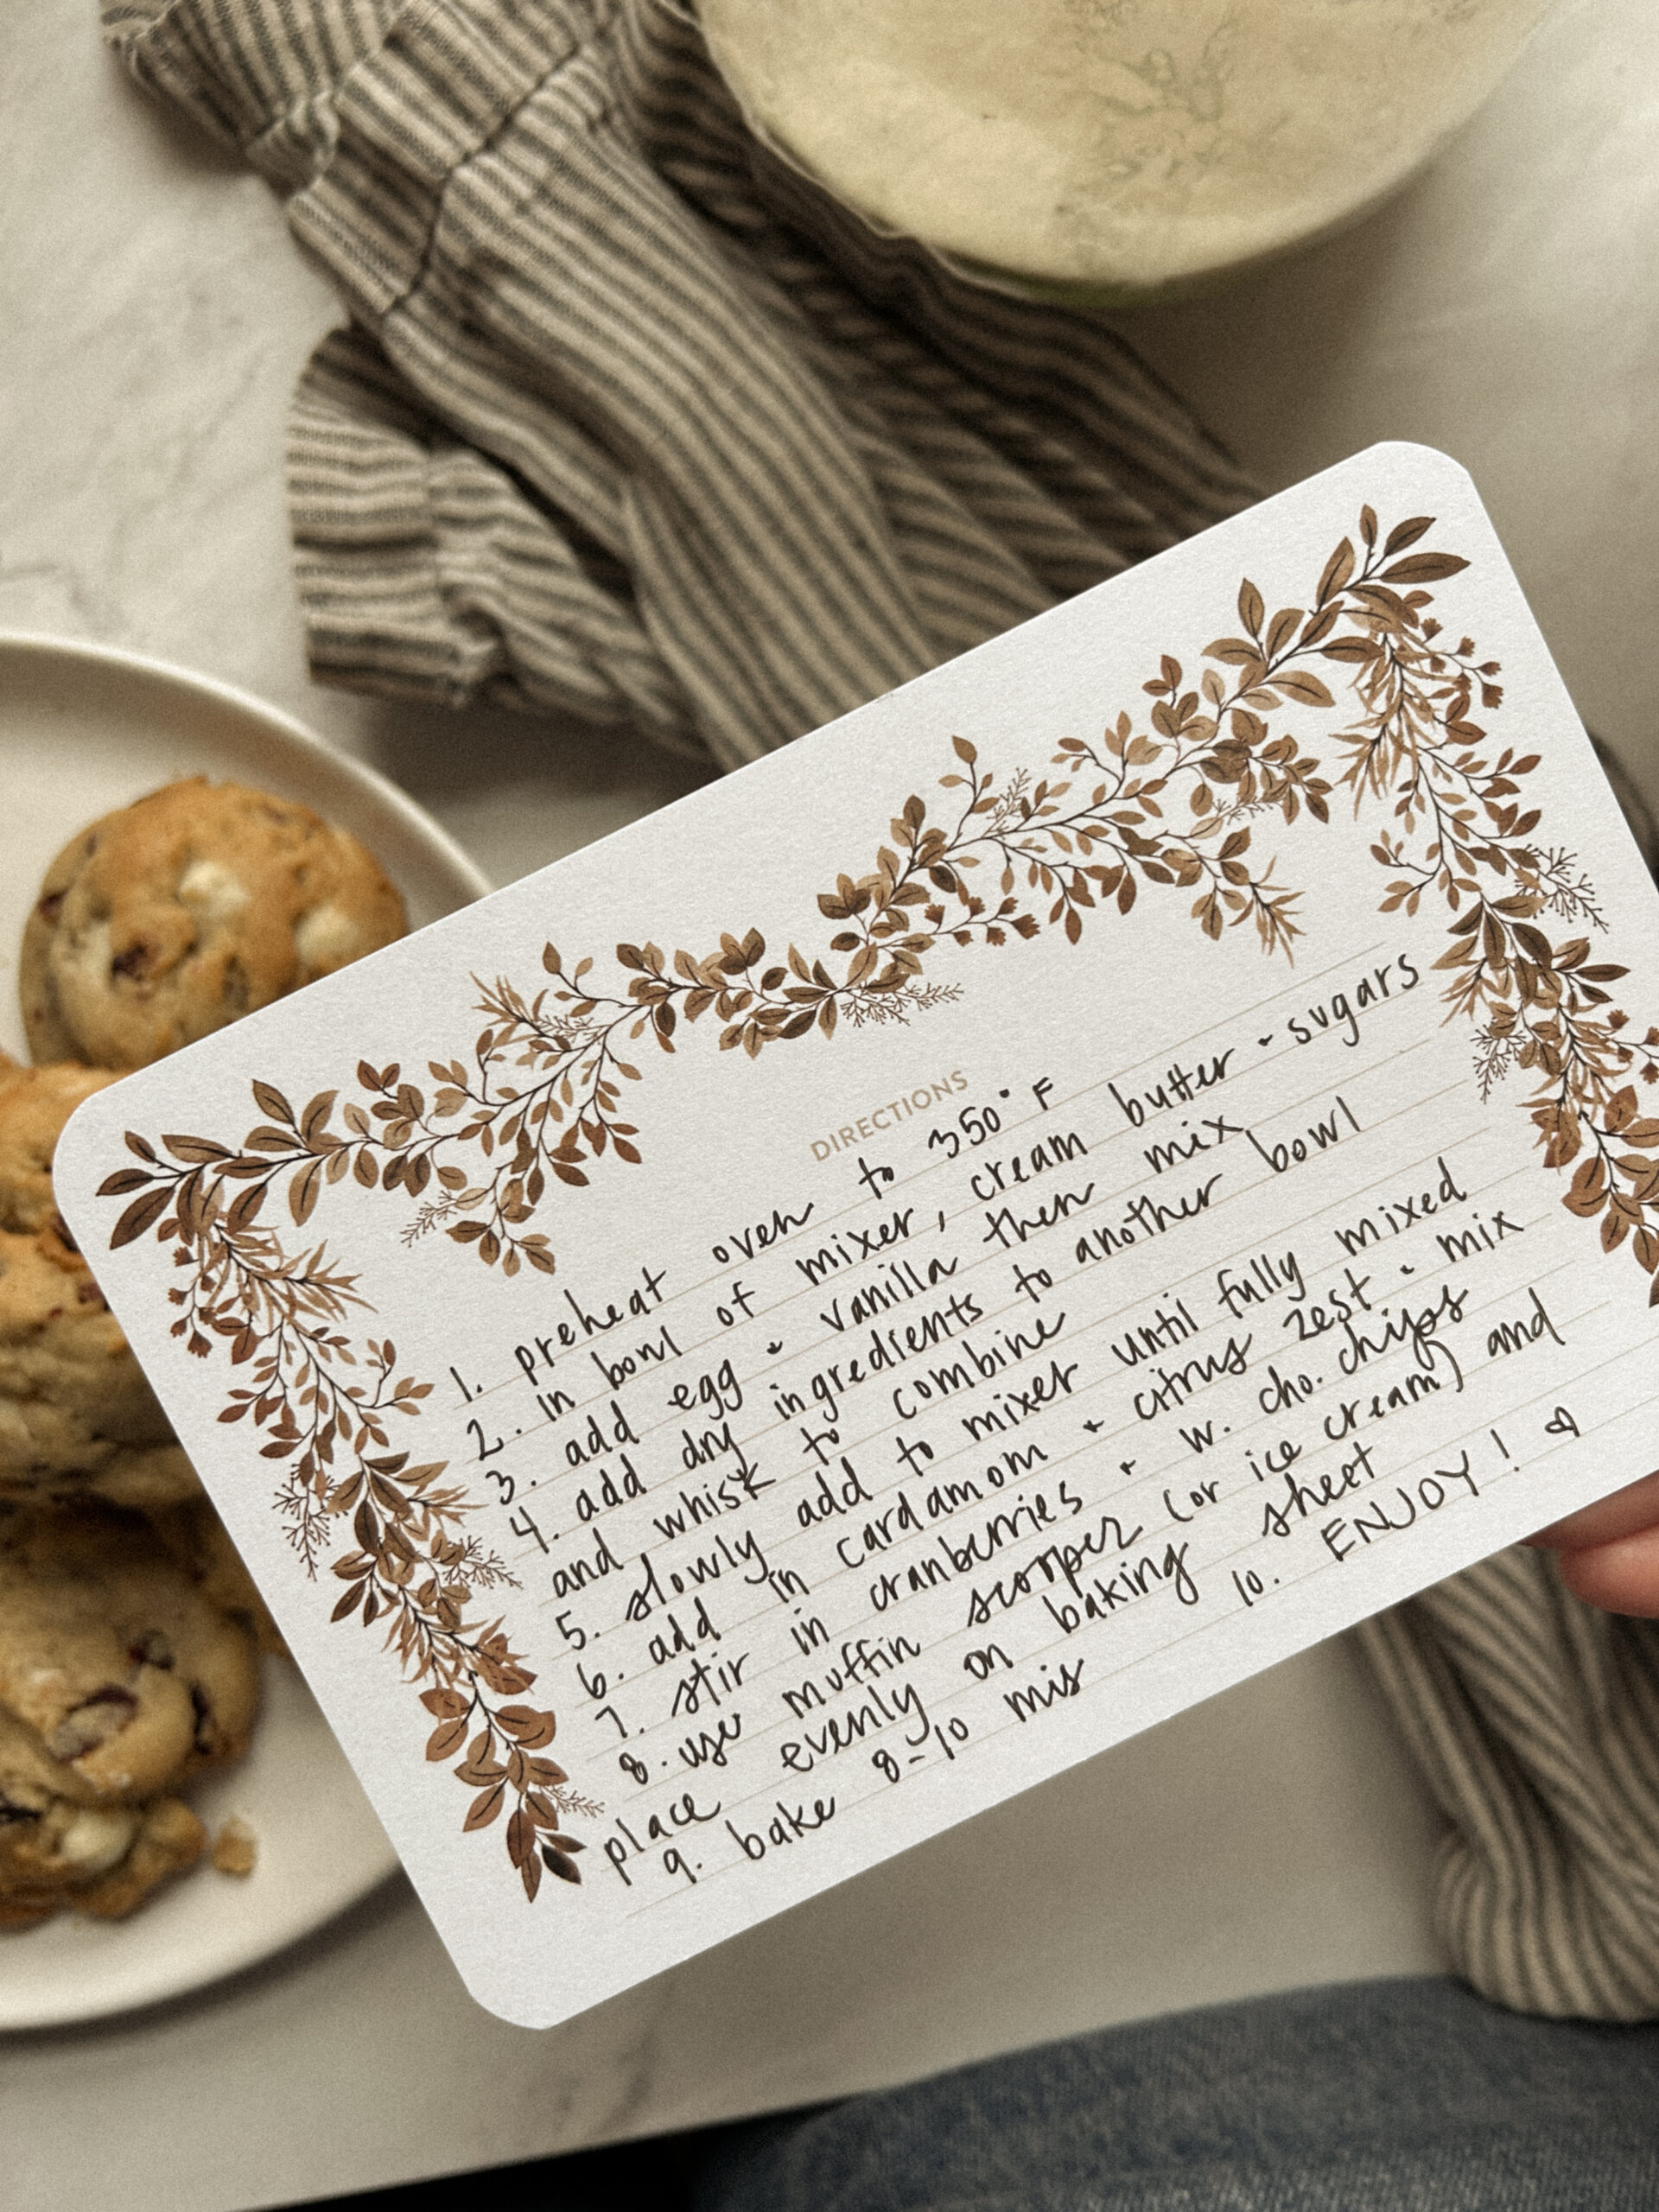 DIRECTIONS
1. preheat oven to 350° F
2. in bowl of mixer, cream butter + sugars
3. add egg + vanilla then mix
4. add dry ingredients to another bowl
and whisk to combine
5. slowly add to mixer until fully mixed
6. add in cardamom + citrus zest + mix
7. stir in cranberries + w. cho. chips
8. use muffin scooper (or ice cream) and
place evenly on baking sheet
9. bake 8-10 mis 10. ENJOY!